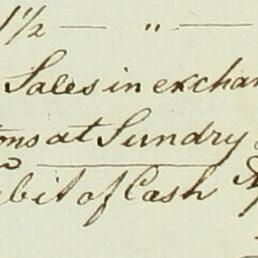 1½ — " —
Sales in exchan
ons at Sundry
bit of Cash